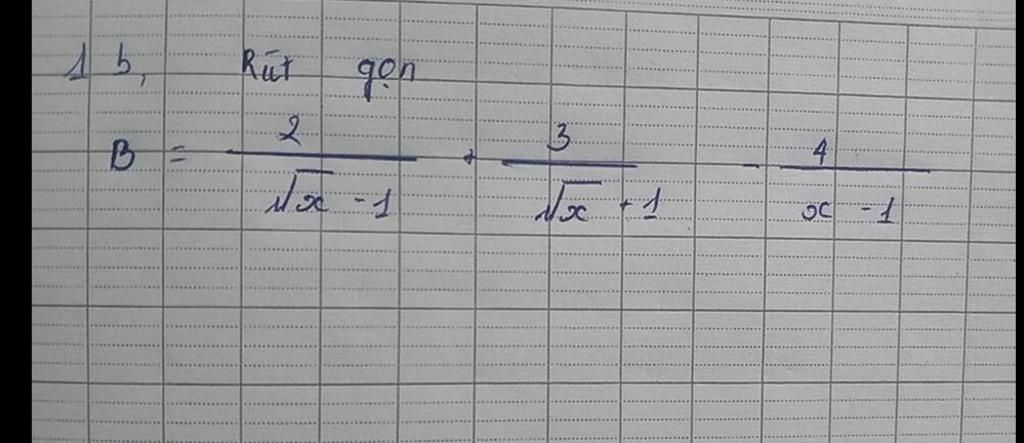 1 b, Rút gọn
B = 2/(√x - 1) + 3/(√x + 1) - 4/(x - 1)